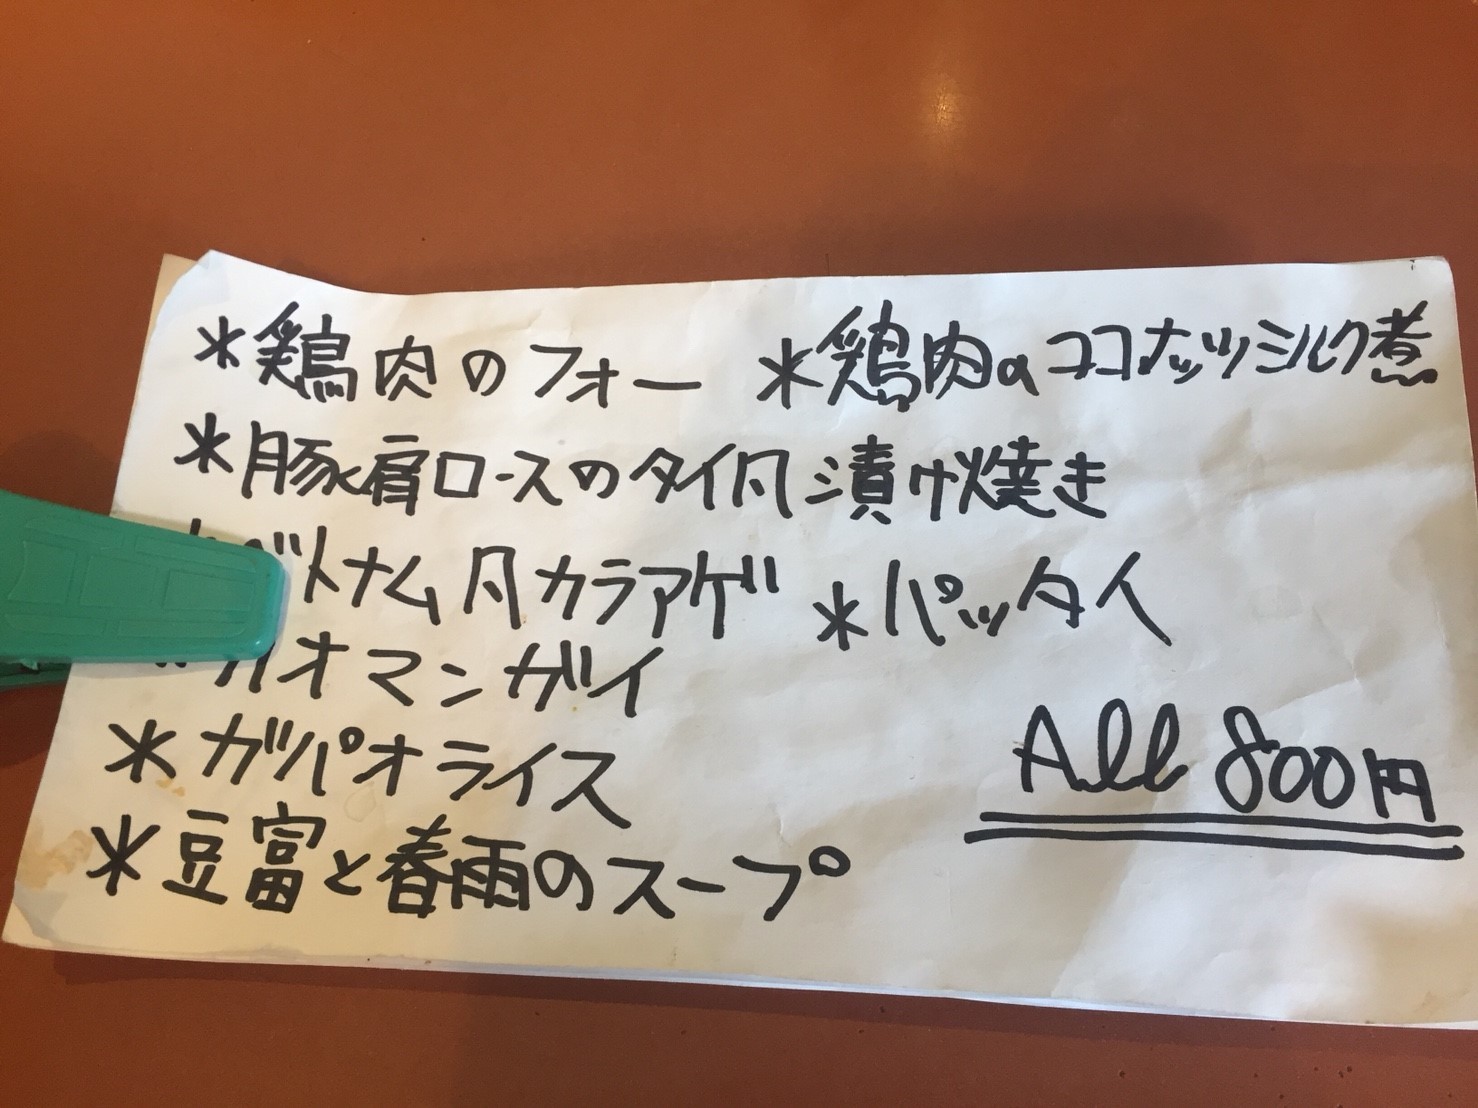 ＊鶏肉のフォー ＊鶏肉のココナッツミルク煮
＊豚肩ロースのタイ風漬け焼き
ベトナム風カラアゲ ＊パッタイ
カオマンガイ
＊ガパオライス
All 800円
＊豆富と春雨のスープ